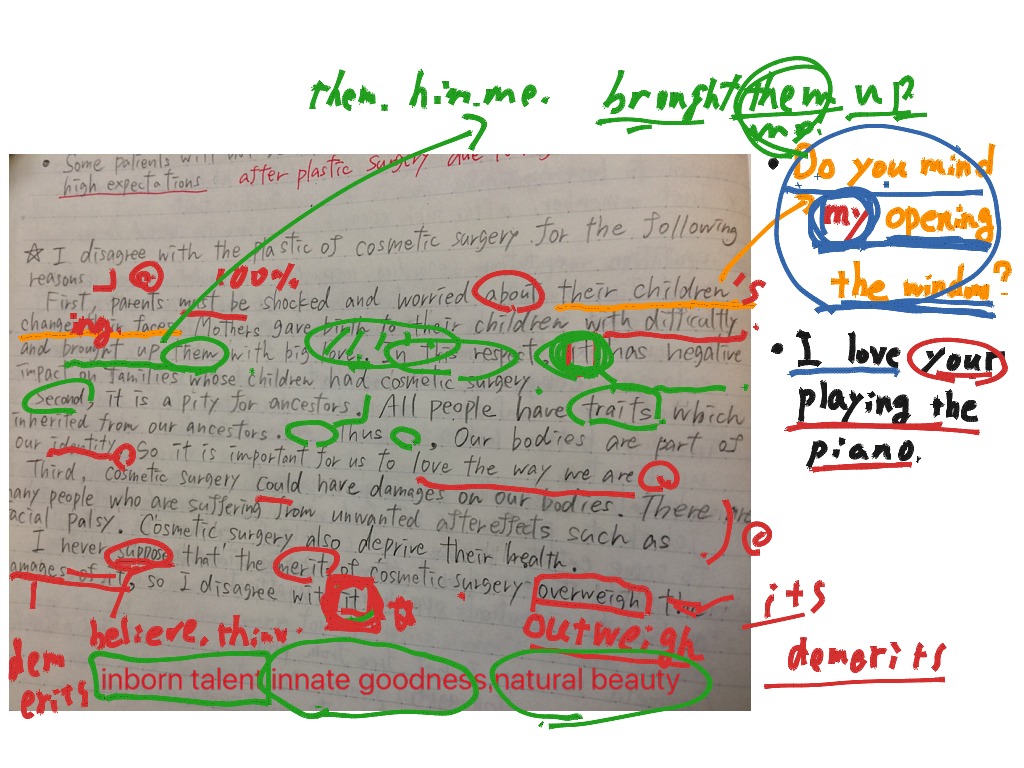 them. him. me. brought them up
me.
• Some patients will
high expectations after plastic surgery due to
• Do you mind
my opening
the window?
☆ I disagree with the plastic of cosmetic surgery for the following
reasons.
100%
First, parents must be shocked and worried about their children's
changeing their faces. Mothers gave birth to their children with difficultly.
and brought up them with big love. In this respect, it has negative
impact on families whose children had cosmetic surgery.
• I love your
playing the
piano.
Second, it is a pity for ancestors. All people have traits which
inherited from our ancestors. Thus, Our bodies are part of
our identity. So it is important for us to love the way we are
Third, cosmetic surgery could have damages on our bodies. There are
many people who are suffering from unwanted aftereffects such as
facial palsy. Cosmetic surgery also deprive their health.
I never suppose that the merit of cosmetic surgery overweigh the
damages of it, so I disagree with it.
its
believe. think. outweigh
demerits
demerits
inborn talent, innate goodness, natural beauty